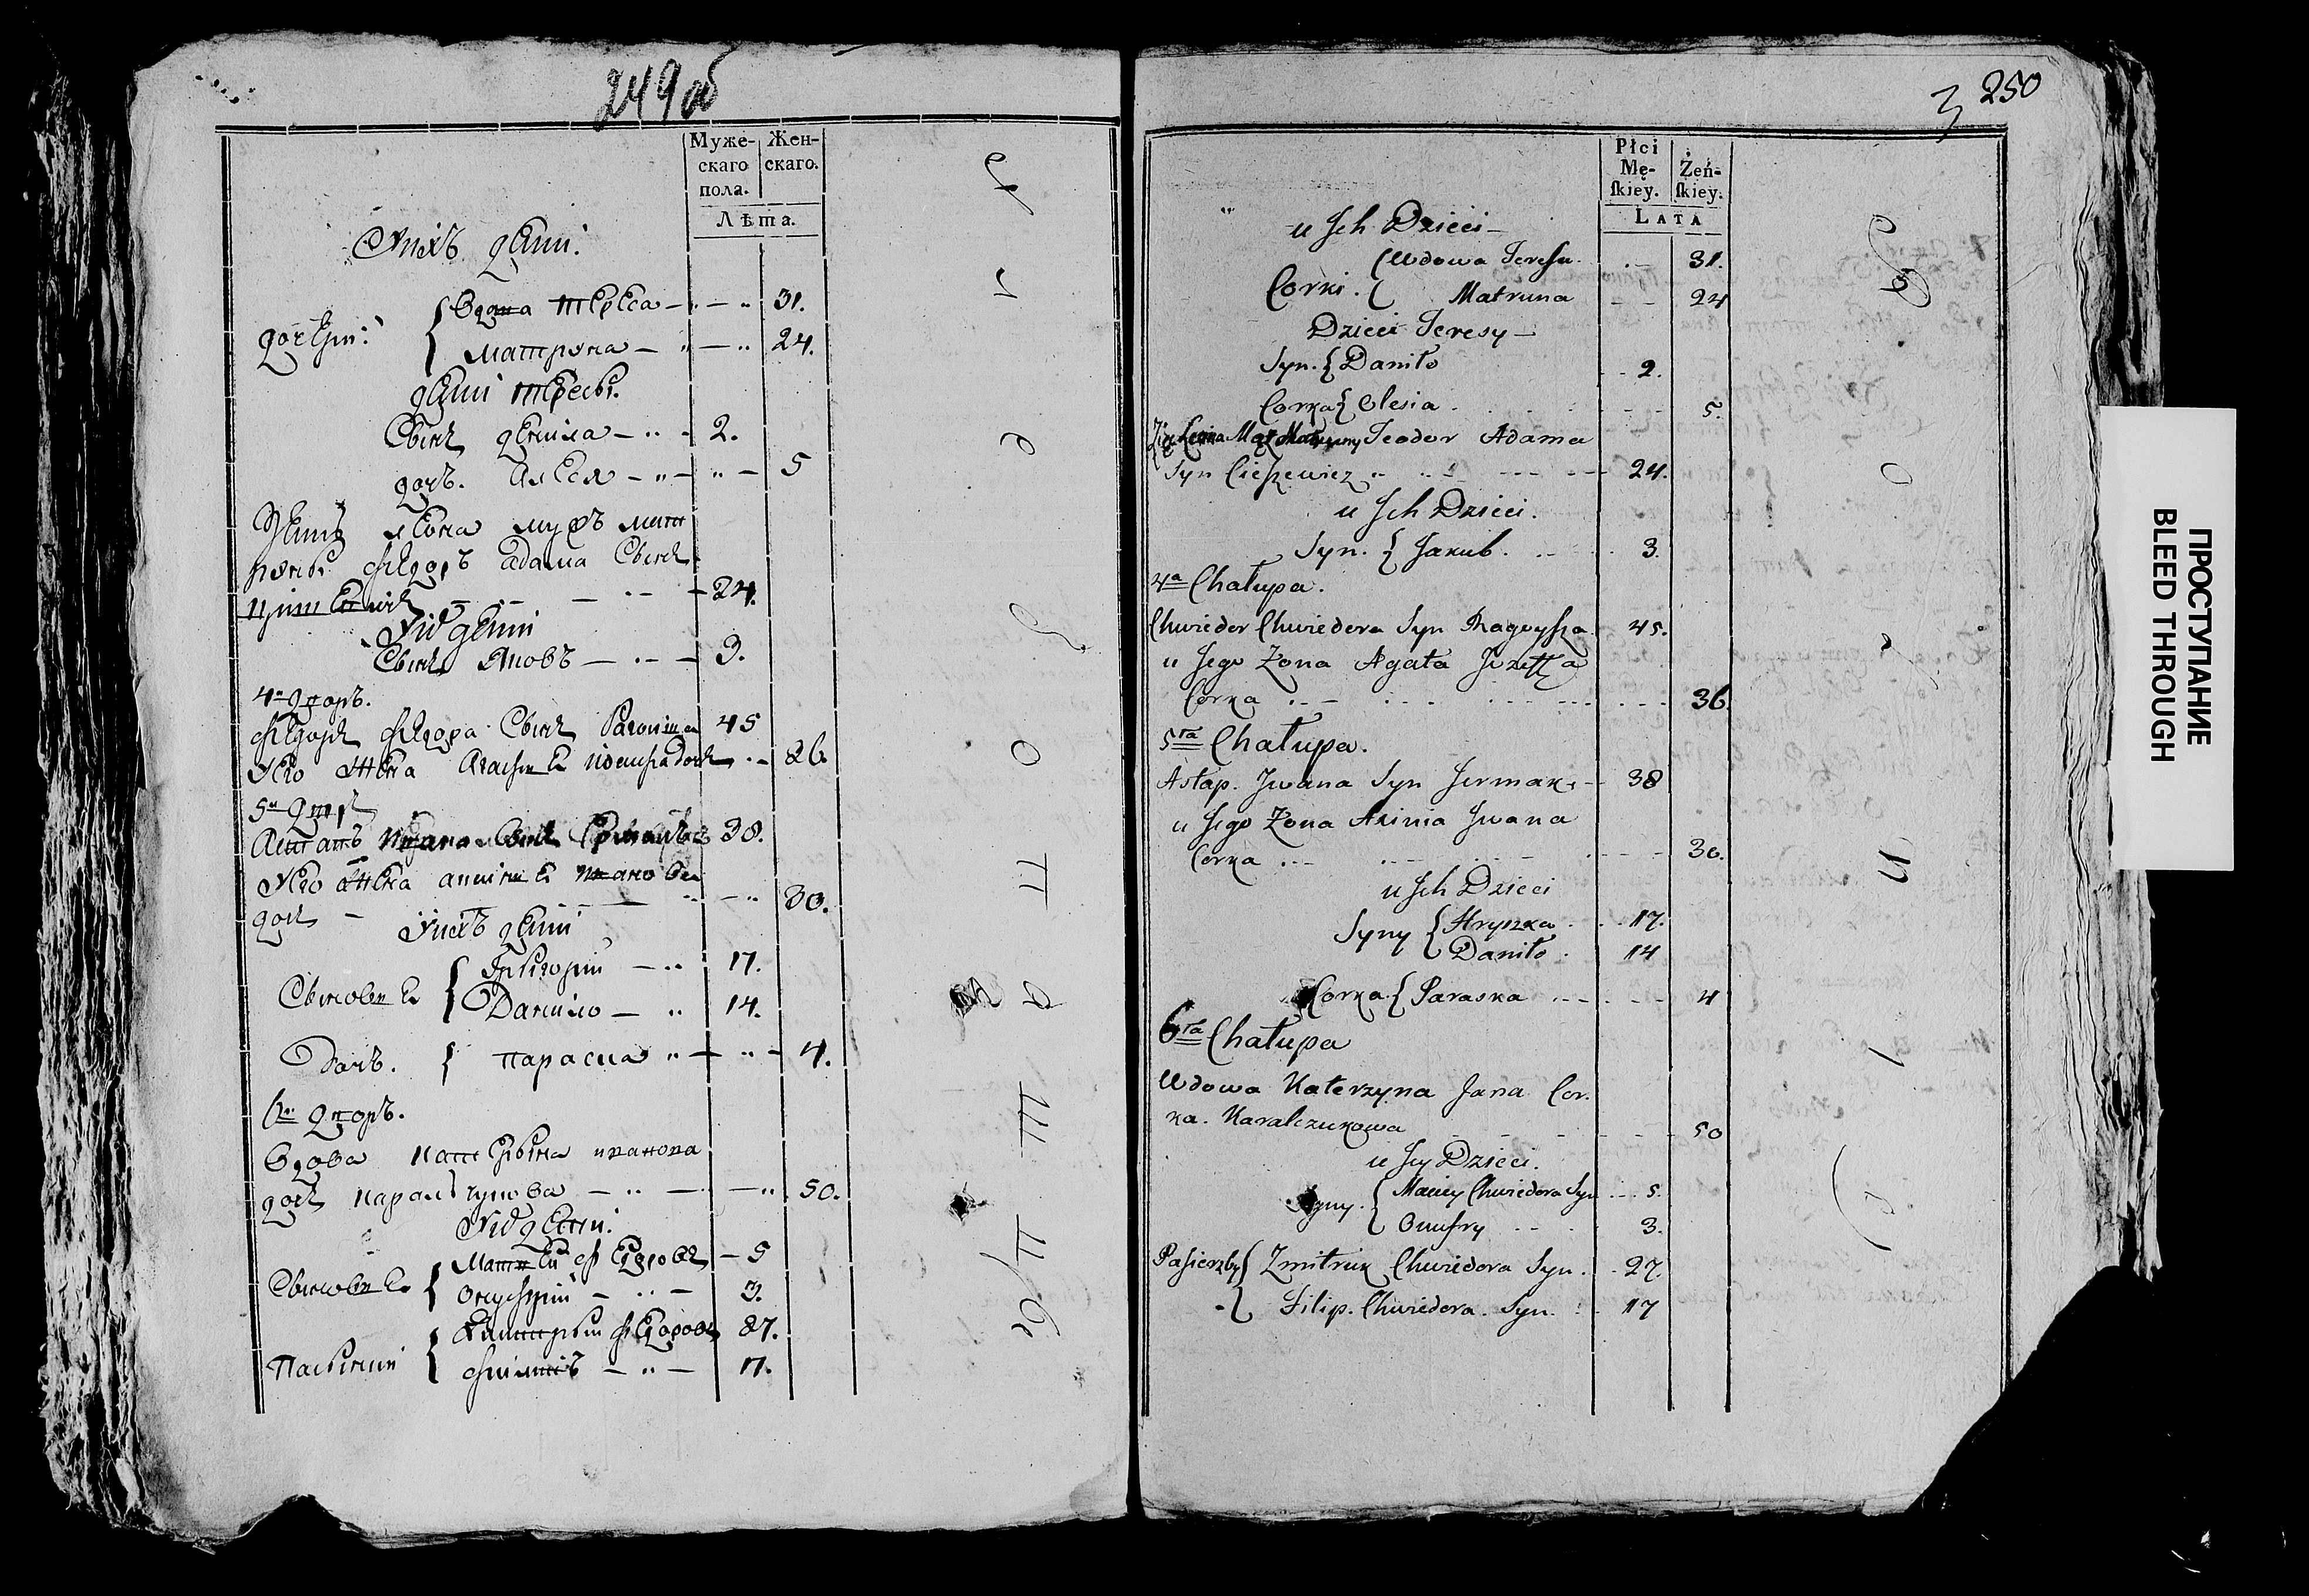 249 об
Муже-
скаго
пола.
Жен-
скаго.
Лѣта.
У нихъ дѣти:
дочери: { Вдова Тереса — 31.
Матрона — 24.
дѣти Тересы.
Сынъ Данила — 2.
дочь. Алеся — 5
Зять Леона мужъ Мат
роны Федоръ Адама Сынъ
24.
У них дѣти
Сынъ Яковъ — 3.
4й Дворъ.
Федоръ Федора Сынъ 45
Его жена Агафия 36
5й Дворъ
Астапъ Ивана Сынъ 38.
Его жена Иванова
дочь — 30.
У нихъ дѣти
Сыновья { Григорий — 17.
Данило — 14.
Дочь. { Параска — 4.
6й Дворъ.
Вдова Катерына Иванова
дочь Каральчукова — 50.
У ней дѣти:
Сыновья { Матвей Федоровъ — 5
Онуфрий — 3.
Пасынки { Дмитрый Федоровъ 27.
Филипъ — 17.
3 250
Płci
Mę-
skiey.
Żeń-
skiey.
LATA
u Ich Dzieci —
Corki. { Wdowa Teresa. 31.
Matruna 24
Dzieci Teresy —
Syn. { Daniło 2.
Corka { Olesia. 5.
Zięć Leona Mąż Matruny Teodor Adama
Syn Cieszewicz 24.
u Ich Dzieci.
Syn. { Jakub. 3.
4ª Chałupa.
Chwiedor Chwiedora Syn Ragoysza 45.
u Jego Żona Agata Jozefa
Corka 36.
5ta Chałupa.
Astap. Jwana Syn Jermak 38
u Jego Żona Axinia Jwana
Corka 30.
u Ich Dzieci
Syny { Hryszka 17.
Daniło 14
Corka { Paraska 4
6ta Chałupa
Wdowa Katerzyna Jana Cor.
ka. Karalczukowa 50
u Jey Dzieci.
Syny. { Maciey Chwiedora Syn 5.
Onufry 3.
Pasierzby { Zmitruk Chwiedora Syn. 27.
{ Filip. Chwiedora. Syn. 17
ПРОСТУПАНИЕ
BLEED THROUGH